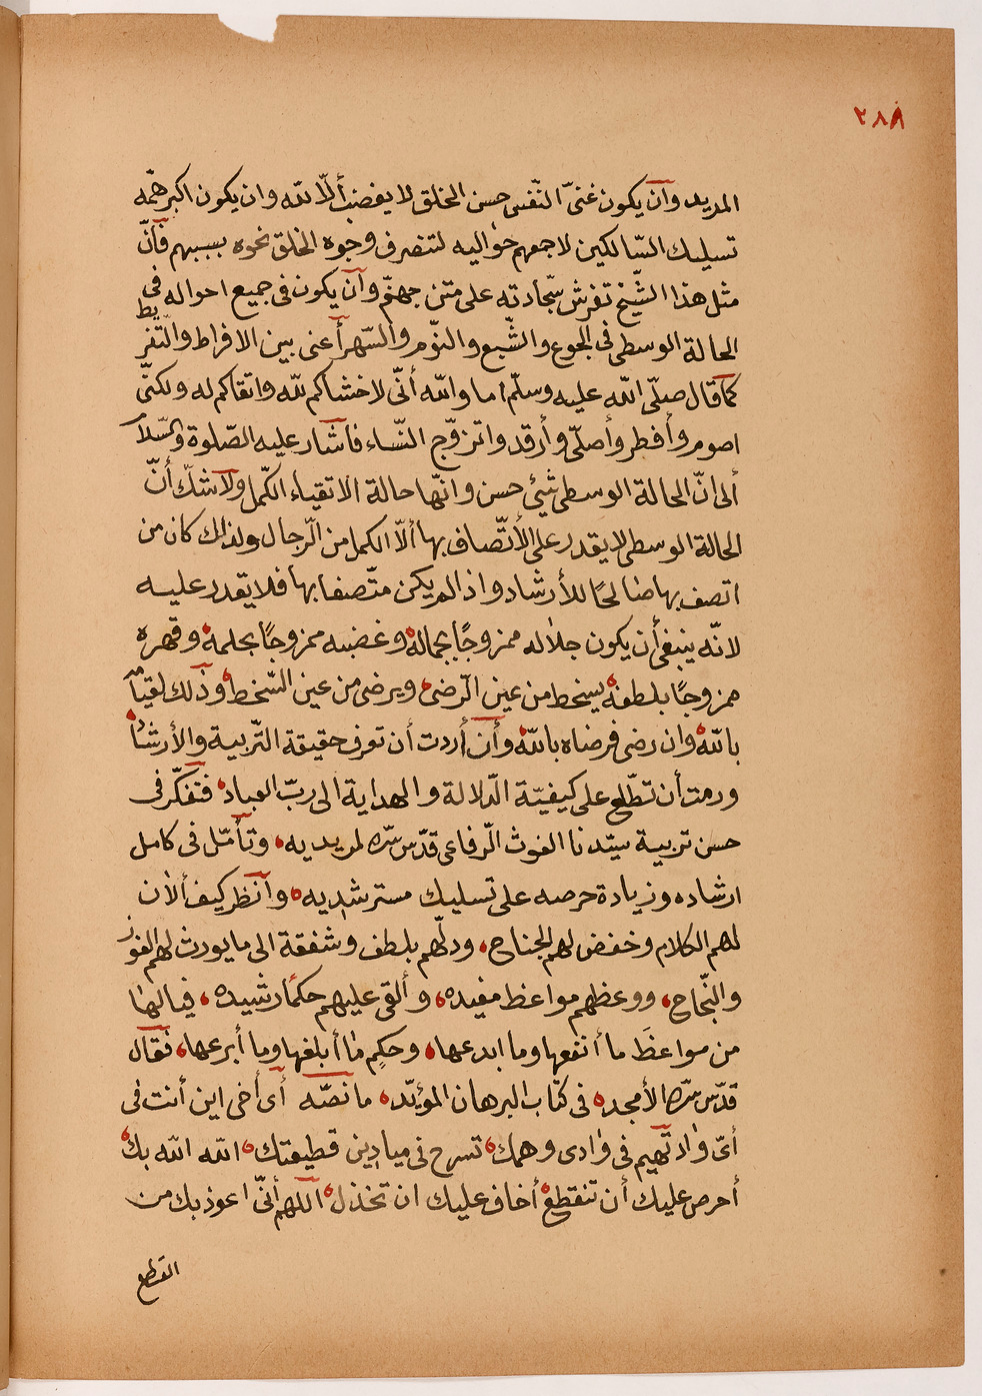 ٢٨٨
المريد وان يكون غنىّ النّفس حسن الخلق لا يغضب ألّا لله وان يكون اكبر همّه
تسليك السّالكين لا جمعهم حواليه لتنصرف وجوه الخلق نحوه بسببهم فأنّ
مثل هذا الشّيخ تفرش سجّادته على متن جهنّم وأن يكون فى جميع احواله فى
الحالة الوسطى فى الجوع والشّبع والنوّم والسّهر أعنى بين الافراط والتّفريط
كما قال صلّى الله عليه وسلّم اما والله أنّى لاخشاكم لله واتقاكم له ولكنّى
اصوم وأفطر وأصلّى وأرقد واتزوّج النّساء فأشار عليه الصّلوة والسّلام
ألى انّ الحالة الوسطى شئ حسن وانّها حالة الاتقياء الكمّل ولا شكّ أنّ
الحالة الوسطى لا يقدر على الأتّصاف بها ألّا الكمل من الّرجال ولذلك كان من
اتصف بها صالحًا للأرشاد واذ لم يكن متّصفا بها فلا يقدر عليه
لانّه ينبغى أن يكون جلاله ممزوجًا بجماله وغضبه ممزوجًا بحلمه وقهره
ممزوجًا بلطفه يسخط من عين الّرضى ويرضى من عين السّخط وذلك لقيامه
بالله وان رضى فرضاه بالله وأن أردت أن تعرف حقيقة التّربية والأرشاد
ورمت أن تطّلع على كيفيّة الّدلالة والهداية الى ربّ العباد فتفكّر فى
حسن تربية سيّدنا الغوث الّرفاعى قدّس سّره لمريديه، وتأمّل فى كامل
ارشاده وزيادة حرصه على تسليك مسترشديه، وانظر كيف ألان
لهم الكلام وخفض لهم الجناح، ودلّهم بلطف وشفقة الى ما يورث لهم الفوز
والنّجاح، ووعظهم مواعظ مفيده، وألقى عليهم حكمًا رشيده، فيالها
من مواعظَ ما أنفعها وما ابدعها، وحكمٍ ما أبلغها وما أبرعها، فقال
قدّس سّره الأمجد، فى كتاب البرهان المؤيّد، ما نصّه أى أخى اين أنت فى
أىّ واد تهيم فى وادى وهمك، تسرح فى ميادين قطيعتك، الله الله بك
أحرص عليك أن تنقطع، أخاف عليك ان تخذل، اللهم أنّى اعوذ بك من
القطع